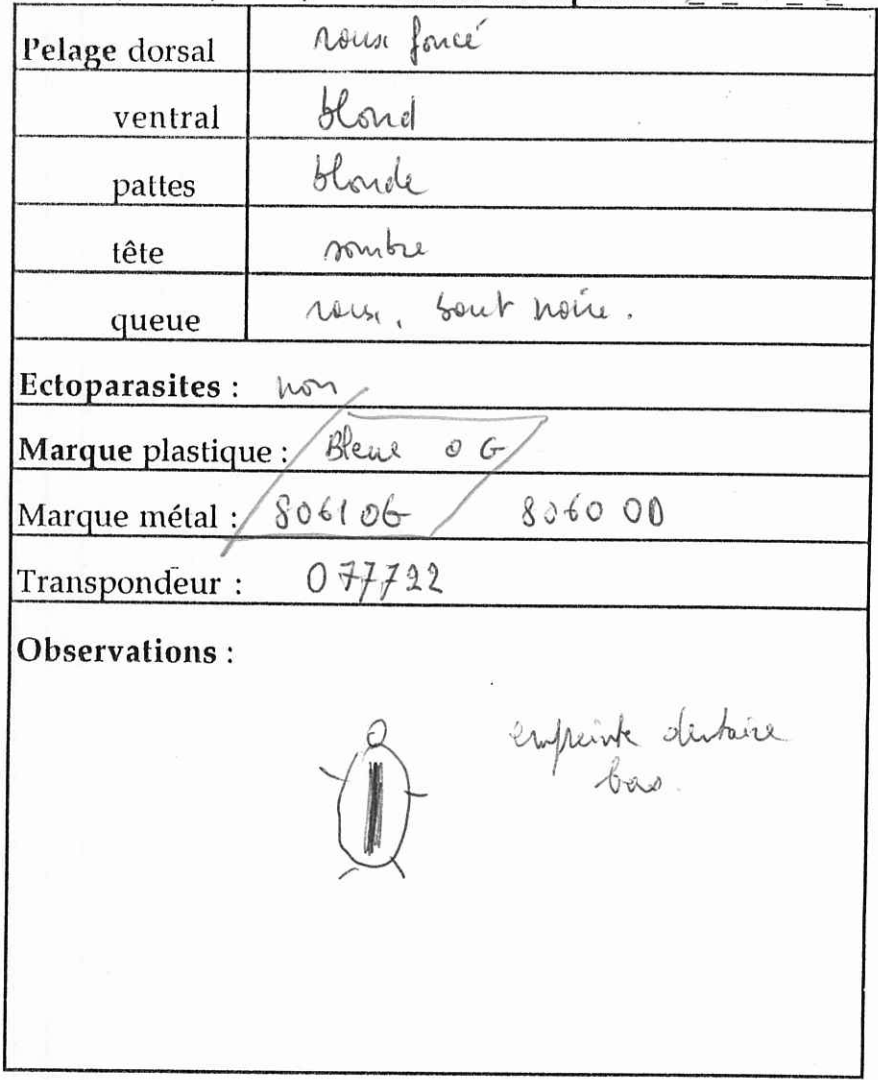 Pelage dorsal roux foncé
ventral blond
pattes blonde
tête sombre
queue roux, bout noire.
Ectoparasites : non
Marque plastique : Bleue O G
Marque métal : 8061 OG 8060 OD
Transpondeur : 077722
Observations :
empreinte dentaire
bas.